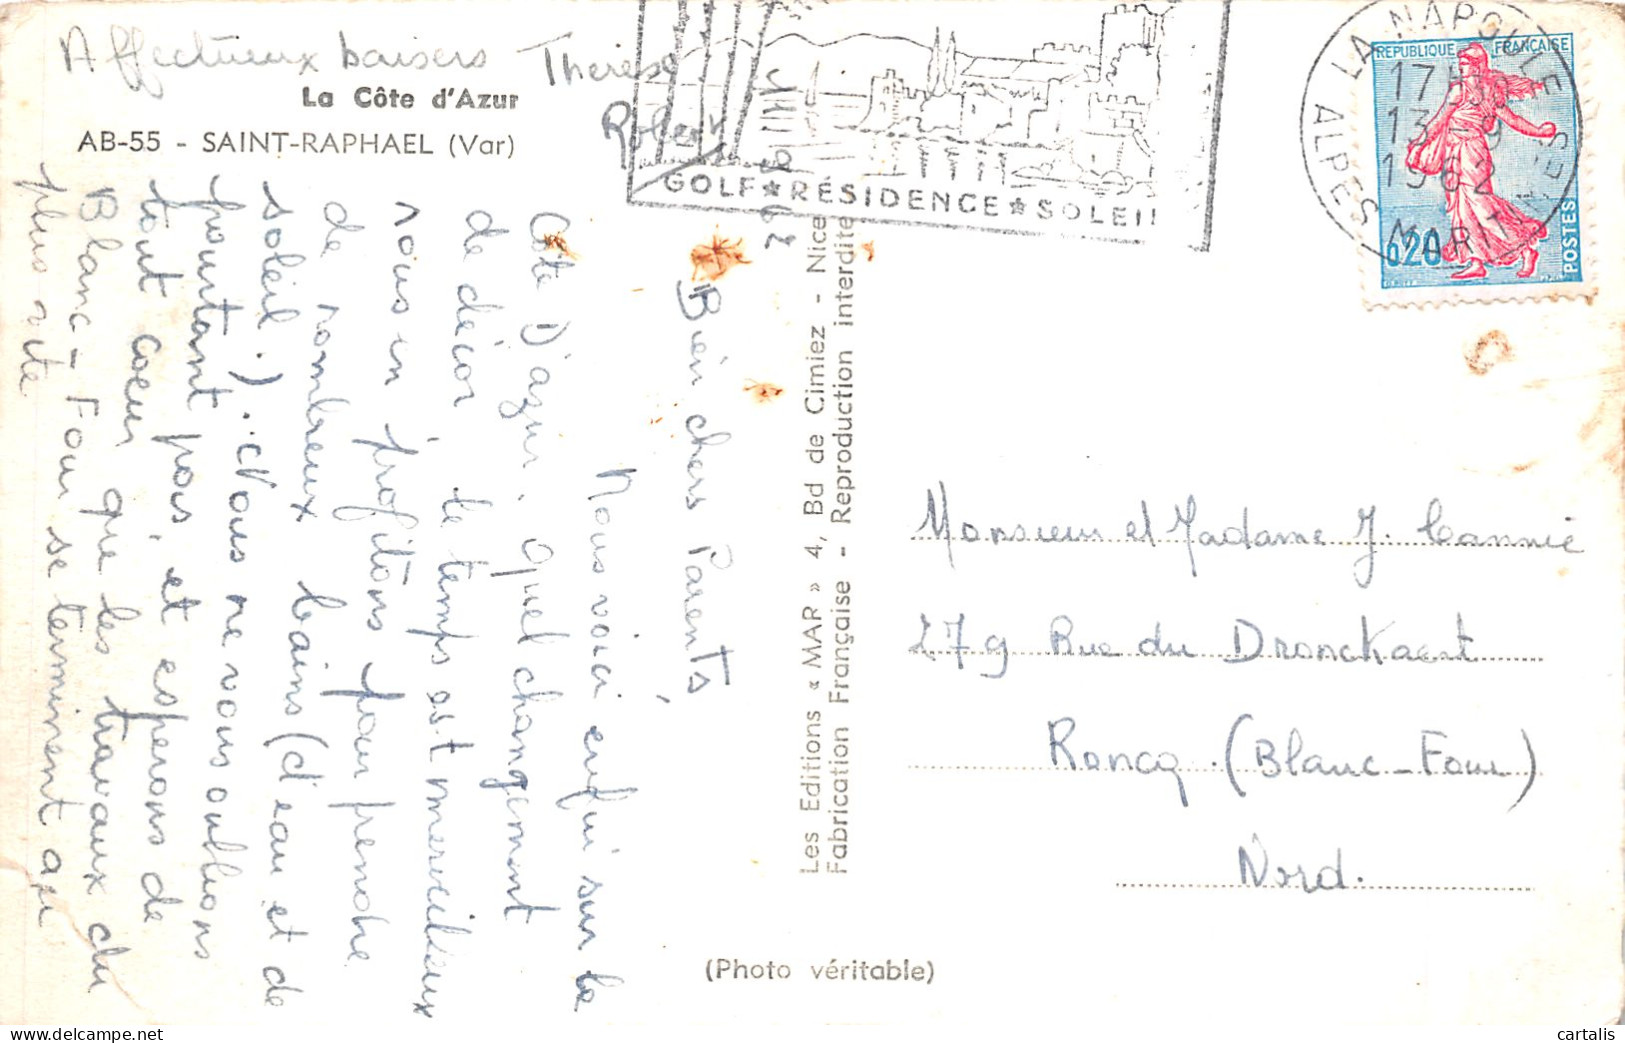 Affectueux baisers Thérèse
Robert
La Côte d'Azur
AB-55 - SAINT-RAPHAEL (Var)
11 9 62
Bien chers Parents,
Nous voici enfin sur la
Côte D'azur, quel changement
de décor, le temps est merveilleux
nous en profitons pour prendre
de nombreux bains (d'eau et de
soleil.). Nous ne vous oublions
pourtant pas, et espérons de
tout coeur que les travaux du
Blanc-Four se terminent au
plus vite.
Les Editions « MAR » 4, Bd de Cimiez - Nice
Fabrication Française - Reproduction interdite
(Photo véritable)
GOLF ★ RÉSIDENCE ★ SOLEIL
LA NAPOULE
17H30
13-9
1962
ALPES MARITIMES
REPUBLIQUE FRANÇAISE
0,20
POSTES
Monsieur et Madame J. Cannie
279 Rue du Dronckaert
Roncq. (Blanc-Four)
Nord.
cartalis